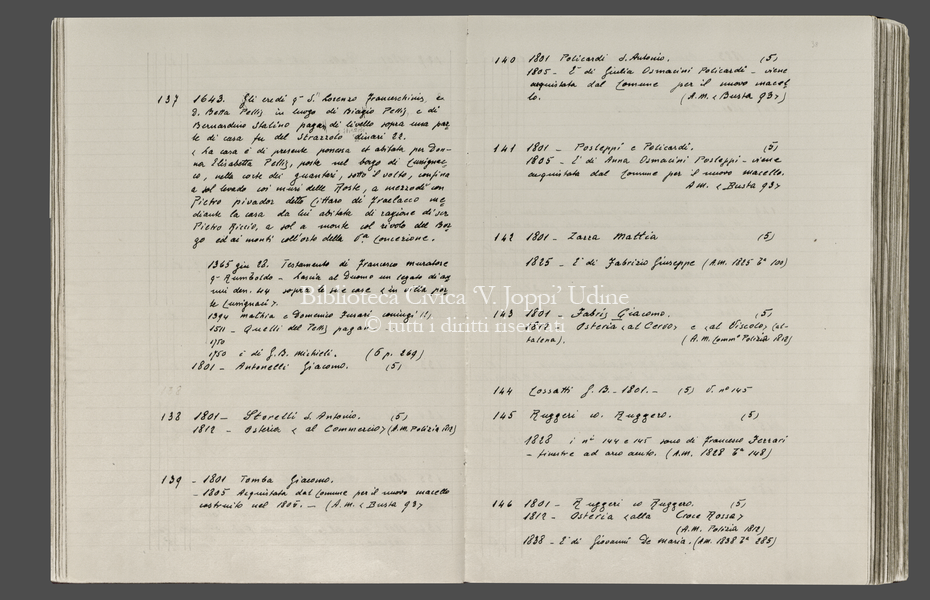 137 1643. Gli eredi q. S.r Lorenzo Franceschinis, e
d. Betta Pelliz in luogo di Biagio Pelliz, e di
Bernardino Stalino pagan di livello sopra una par
te di casa fu del Strazzolo dinari 22.
< La casa è di presente possessa et abitata per Don-
na Elisabetta Pelliz, posta nel borgo di Cusignac
co, nella corte dei guantari, sotto il volto, confina
a sol levado coi muri delle Roste, a mezzodì con
Pietro pivador detto Cittaro di Fraelacco me
diante la casa da lui abitata di ragione di ser
Pietro Riccio, a sol a monte col rivolo del Bor
go ed ai monti coll'orto della S.a Concezione.
1365 giu 28. Testamento di Francesco muratore
q. Rumboldo - Lascia al Duomo un legato di ag
sopra le sue case < in villa por
te Cusignaci >.
1394 mathia e Domenico Furari coniugi
1511 - Quelli del Pelliz pagan
1750
1750 è di G.B. Michieli. (G p. 269)
1801 - Antonelli Giacomo. (5)
138 1801 - Storelli S. Antonio. (5)
1812 - Osteria < al Commercio > (A.M. Polizia 1812)
139 - 1801 Tomba Giacomo.
- 1805 Acquistata dal Comune per il nuovo macello
costruito nel 1805. - (A.M. < Busta 93 >
140 1801 Policardi S. Antonio. (5)
1805 - E' di Giulia Osmacini Policardi - viene
acquistata dal Comune per il nuovo macel
lo. (A.M. < Busta 93 >)
141 1801 - Posteppi e Policardi. (5)
1805 - E' di Anna Osmacini Posteppi - viene
acquistata dal Comune per il nuovo macello.
A.M. < Busta 93 >
142 1801 - Zarra Mattia (5)
1825 - E' di Fabrizio Giuseppe (A.M. 1825 T.a 100)
143 1801 - Fabris Giacomo. (5)
1812 - Osteria < al Cervo > e < al Discolo > (al-
talena). (A.M. Comm.e Polizia 1812)
144 Cossatti G.B. - 1801. - (5) V. n° 145
145 Ruggeri o. Ruggero. (5)
1828 i n.i 144 e 145 sono di Francesco Ferrari
- finestre ad arco acuto. (A.M. 1828 T.a 148)
146 1801 - Ruggeri o Ruggero. (5)
1812 - Osteria < alla Croce Rossa >
(A.M. Polizia 1812)
1838 - E' di Giovanni De Maria. (A.M. 1838 T.a 285)
Biblioteca Civica 'V. Joppi' Udine
© tutti i diritti riservati